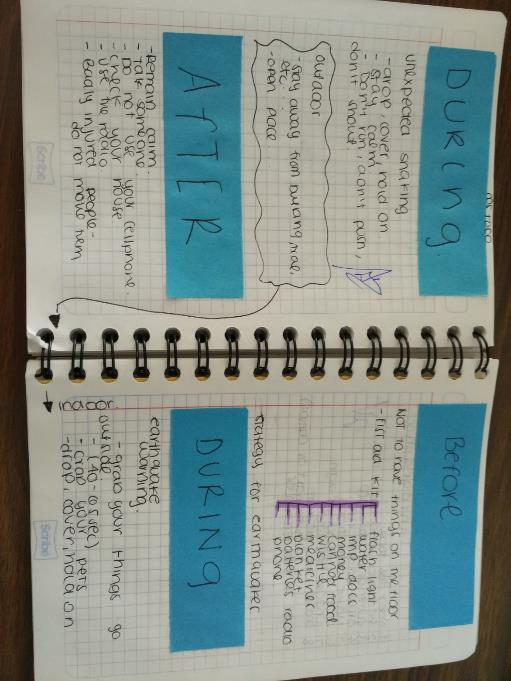 DURING.
unexpected shaking
- drop, cover, hold on.
- stay calm
- Don't run, don't push,
don't shout
outdoor
-stay away from building, tree,
etc...
-open place
AFTER
-Remain calm.
- Talk someone
- Do not use your cellphone.
- Check your house
- Use the radio.
- Badly injured people -
do not move them
Scribe
Before
Not to have things on the floor
- First aid kit
flash light
water
imp docs
money
canned food
whistle
medicines
blanket
batteries radio
phone
strategy for earthquakes
DURING
earthquake
warning
- grab your things go
outside.
- grab your pets
indoor
-drop, cover, hold on
Scribe